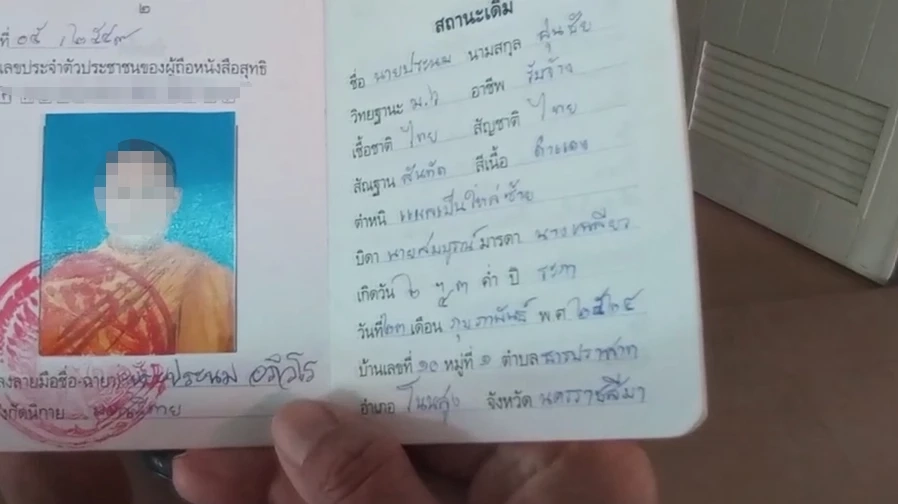 ๒
ที่ ๐๕ /๒๕๔๗
เลขประจำตัวประชาชนของผู้ถือหนังสือสุทธิ
ลงลายมือชื่อ-ฉายา พระประนม
สังกัดนิกาย มหานิกาย
สถานะเดิม
ชื่อ นายประนม นามสกุล
วิทยฐานะ ม.๖ อาชีพ รับจ้าง
เชื้อชาติ ไทย สัญชาติ ไทย
สัณฐาน สันทัด สีเนื้อ ดำแดง
ตำหนิ แผลเป็นไหล่ซ้าย
บิดา นายสมบูรณ์ มารดา นางเฉลียว
เกิดวัน ๒ ๓ ค่ำ ปี ระกา
วันที่ ๒๓ เดือน กุมภาพันธ์ พ.ศ ๒๕๒๔
บ้านเลขที่ ๑๐ หมู่ที่ ๑ ตำบล ธารปราสาท
อำเภอ โนนสูง จังหวัด นครราชสีมา